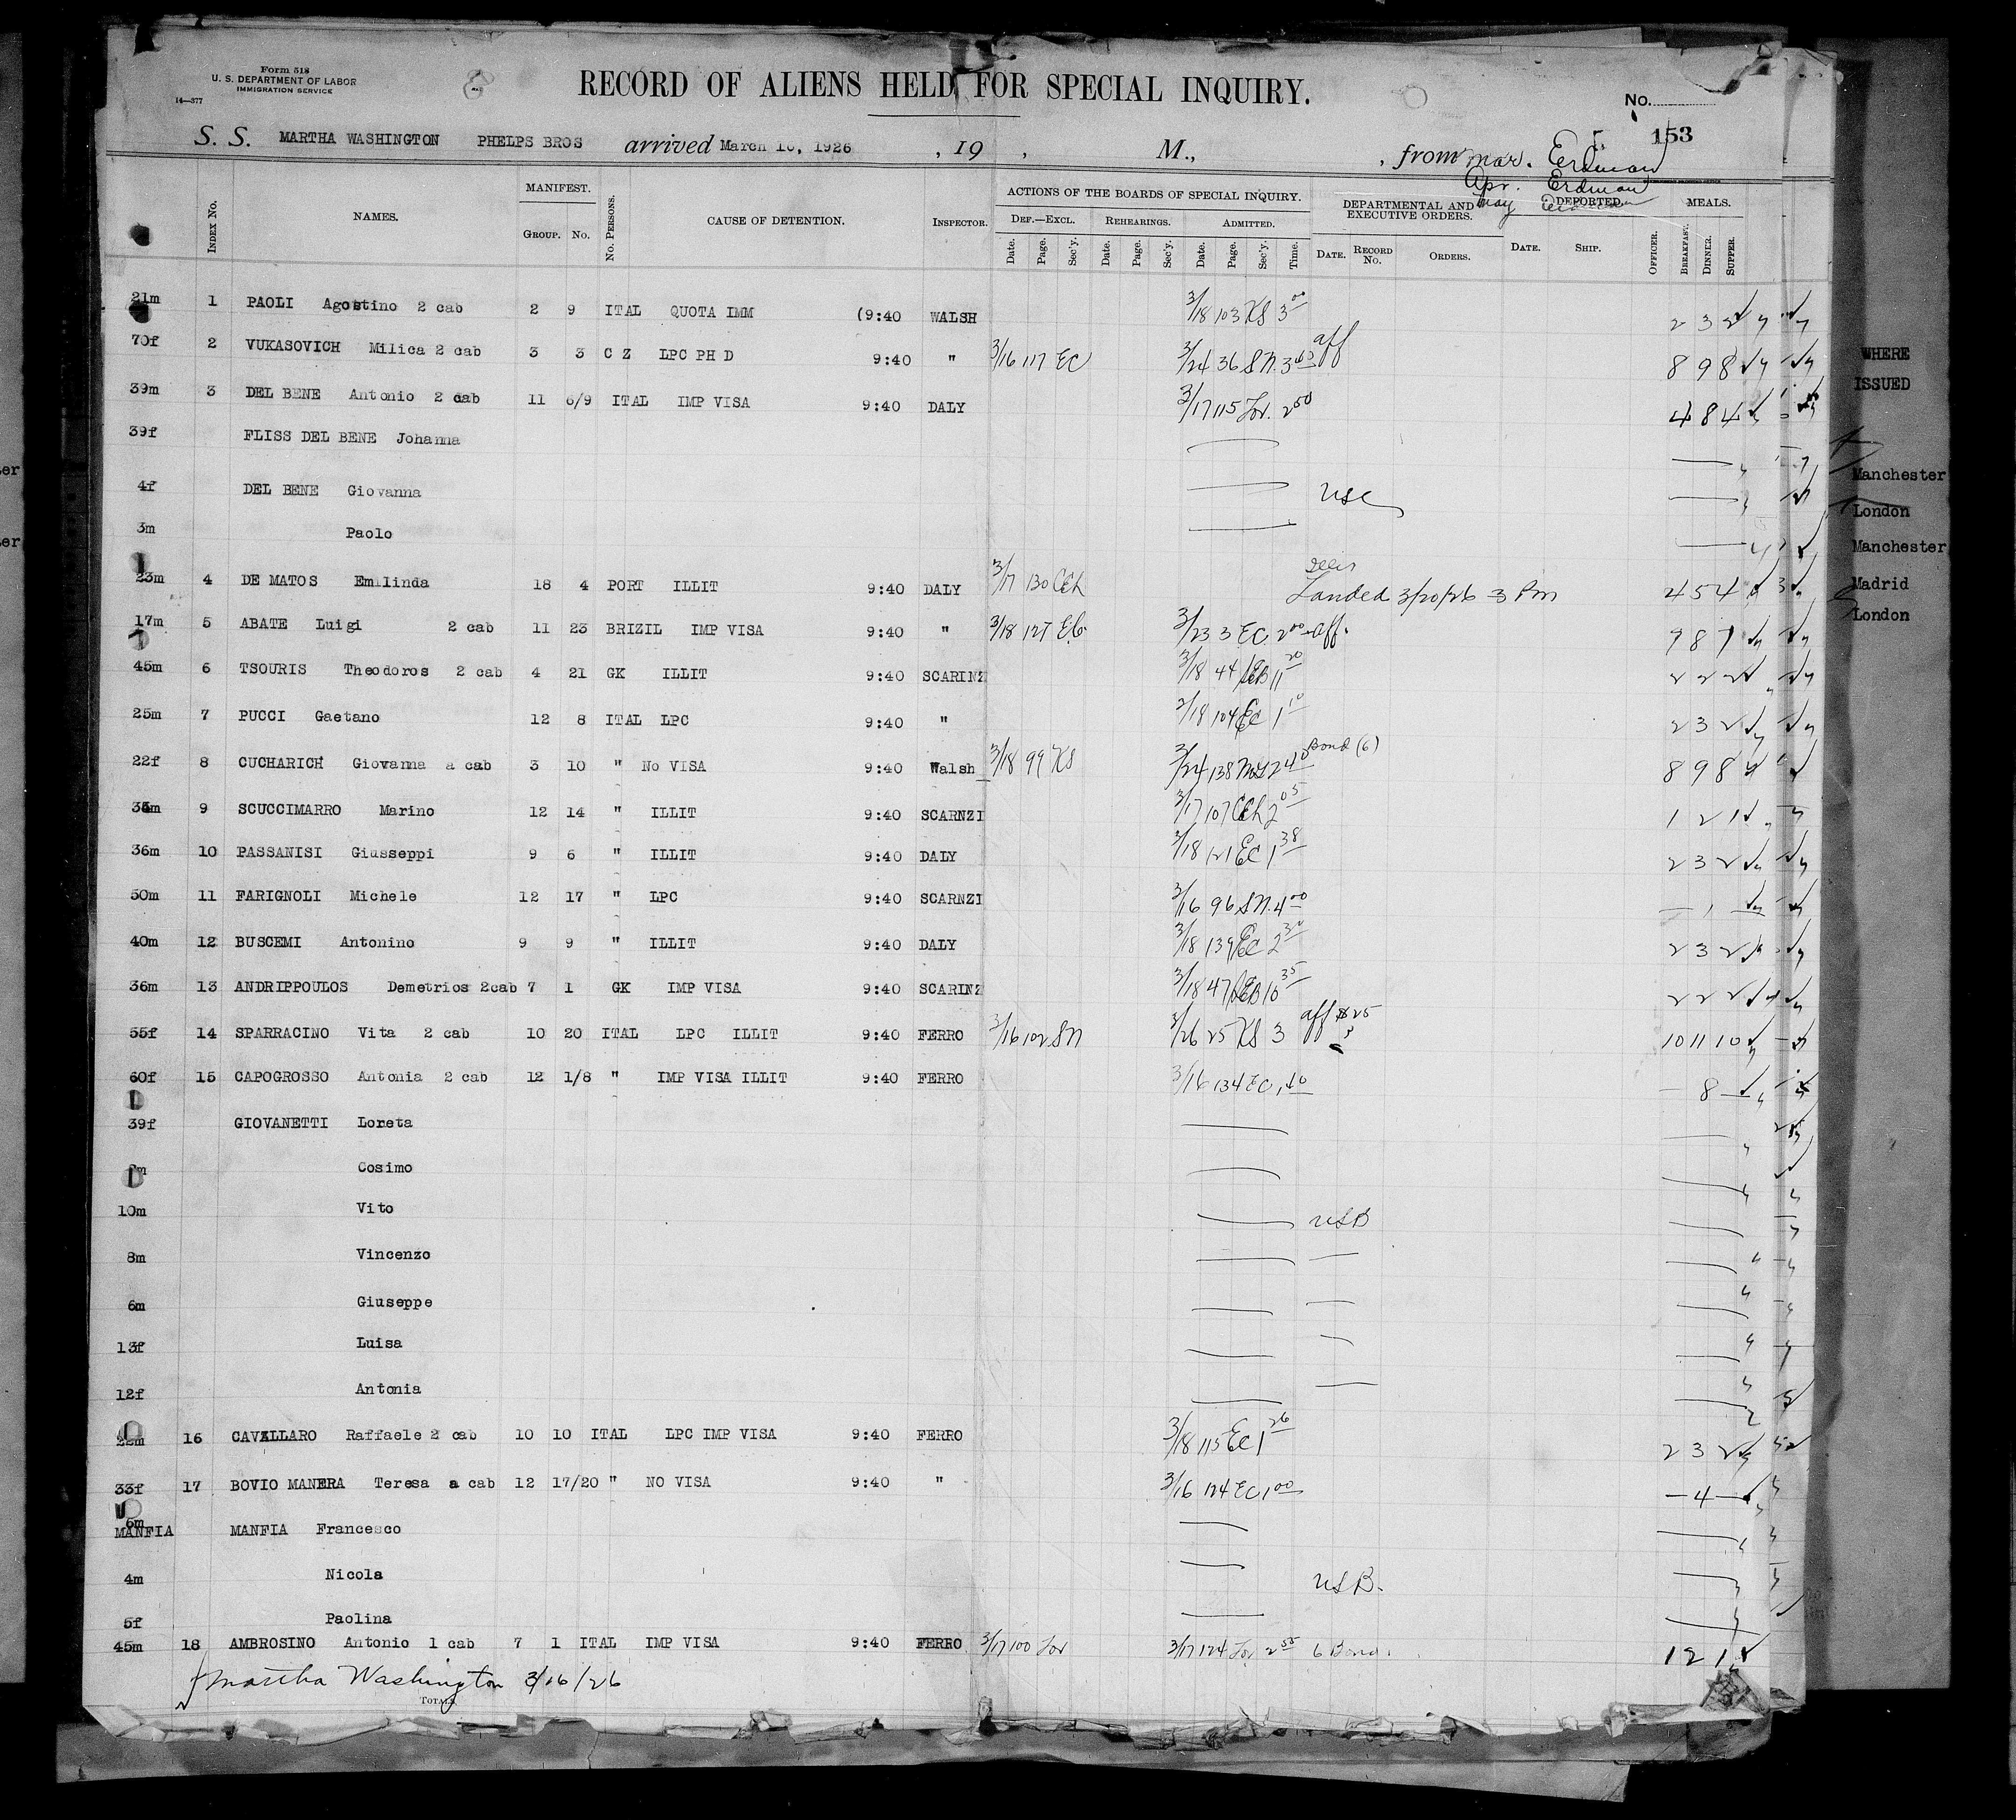 Form 518
U. S. DEPARTMENT OF LABOR
IMMIGRATION SERVICE
14—377
RECORD OF ALIENS HELD FOR SPECIAL INQUIRY.
No.
153
S. S. MARTHA WASHINGTON PHELPS BROS arrived March 16, 1926 , 19 , M., , from Mar. Erdman
Apr. Erdman
May
INDEX No. NAMES. MANIFEST. GROUP. No. No. PERSONS. CAUSE OF DETENTION. INSPECTOR. ACTIONS OF THE BOARDS OF SPECIAL INQUIRY. DEPARTMENTAL AND EXECUTIVE ORDERS. DEPORTED. MEALS.
DEF.—EXCL. REHEARINGS. ADMITTED.
Date. Page. Sec'y. Date. Page. Sec'y. Date. Page. Sec'y. Time. DATE. RECORD No. ORDERS. DATE. SHIP. OFFICER. BREAKFAST. DINNER. SUPPER.
21m 1 PAOLI Agostino 2 cab 2 9 ITAL QUOTA IMM (9:40 WALSH 3/18 103 KS 3 00 2 3 2
70f 2 VUKASOVICH Milica 2 cab 3 3 C Z LPC PH D 9:40 " 3/16 117 EC 3/24 36 SN. 3 45 aff 8 9 8
39m 3 DEL BENE Antonio 2 cab 11 6/9 ITAL IMP VISA 9:40 DALY 3/17 115 Lov. 2 50 4 8 4
39f FLISS DEL BENE Johanna
4f DEL BENE Giovanna USC
3m Paolo
23m 4 DE MATOS Emilinda 18 4 PORT ILLIT 9:40 DALY 3/17 130 CEL Landed 3/20/26 3 Pm 4 5 4
17m 5 ABATE Luigi 2 cab 11 23 BRIZIL IMP VISA 9:40 " 3/18 127 EC. 3/23 3 EC. 2 00 aff. 9 8 7
45m 6 TSOURIS Theodoros 2 cab 4 21 GK ILLIT 9:40 SCARINZ 3/18 44 LEB 11 20 2 2 2
25m 7 PUCCI Gaetano 12 8 ITAL LPC 9:40 " 3/18 104 EC 1 10 2 3 2
22f 8 CUCHARICH Giovanna a cab 3 10 " No VISA 9:40 Walsh 3/18 99 KS 3/24 138 2 40 Bond (6) 8 9 8
9 SCUCCIMARRO Marino 12 14 " ILLIT 9:40 SCARNZI 3/17 107 CEL 2 05 1 2 1
36m 10 PASSANISI Giusseppi 9 6 " ILLIT 9:40 DALY 3/18 121 EC 1 38 2 3 2
50m 11 FARIGNOLI Michele 12 17 " LPC 9:40 SCARNZI 3/16 96 SN. 4 00 — 1 —
40m 12 BUSCEMI Antonino 9 9 " ILLIT 9:40 DALY 3/18 139 EC 2 30 2 3 2
36m 13 ANDRIPPOULOS Demetrios 2cab 7 1 GK IMP VISA 9:40 SCARINZ 3/18 47 LEB 10 35 2 2 2
55f 14 SPARRACINO Vita 2 cab 10 20 ITAL LPC ILLIT 9:40 FERRO 3/16 102 SN 3/26 25 KS 3 aff $25 10 11 10
60f 15 CAPOGROSSO Antonia 2 cab 12 1/8 " IMP VISA ILLIT 9:40 FERRO 3/16 134 EC 1 40 — 8 —
39f GIOVANETTI Loreta
Cosimo
10m Vito USB
8m Vincenzo
6m Giuseppe
13f Luisa
12f Antonia
16 CAVALLARO Raffaele 2 cab 10 10 ITAL LPC IMP VISA 9:40 FERRO 3/18 115 EC 1 26 2 3 2
33f 17 BOVIO MANERA Teresa a cab 12 17/20 " NO VISA 9:40 " 3/16 124 EC 1 00 — 4 —
6m
MANFIA MANFIA Francesco
4m Nicola USB.
5f Paolina
45m 18 AMBROSINO Antonio 1 cab 7 1 ITAL IMP VISA 9:40 FERRO 3/17 100 Lov 3/17 124 Lov 2 55 6 Bond. 1 2 1
Martha Washington 3/16/26
TOTALS
WHERE
ISSUED
Manchester
London
Manchester
Madrid
London
er
er